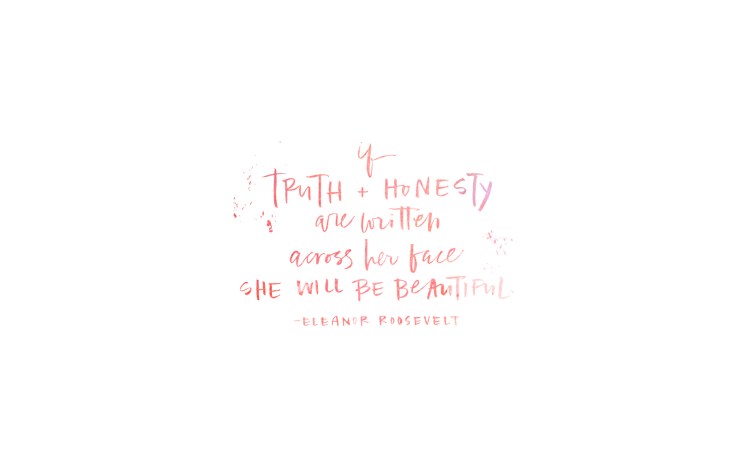 if
TRUTH + HONESTY
are written
across her face
SHE WILL BE BEAUTIFUL.
-ELEANOR ROOSEVELT